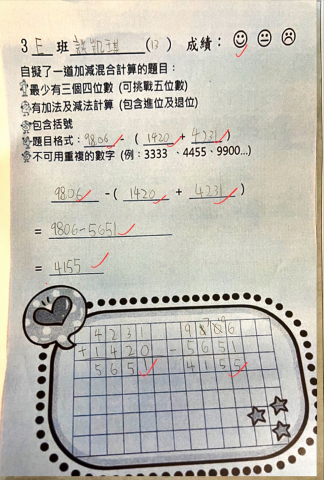 3 E 班 (13) 成績：
自擬了一道加減混合計算的題目：
最少有三個四位數 (可挑戰五位數)
有加法及減法計算 (包含進位及退位)
包含括號
題目格式：9806 - ( 1420 + 4231 )
不可用重複的數字 (例：3333 、4455、9900...)
9806 -( 1420 + 4231 )
= 9806-5651
= 4155
4231 9806
+1420 -5651
5651 4155